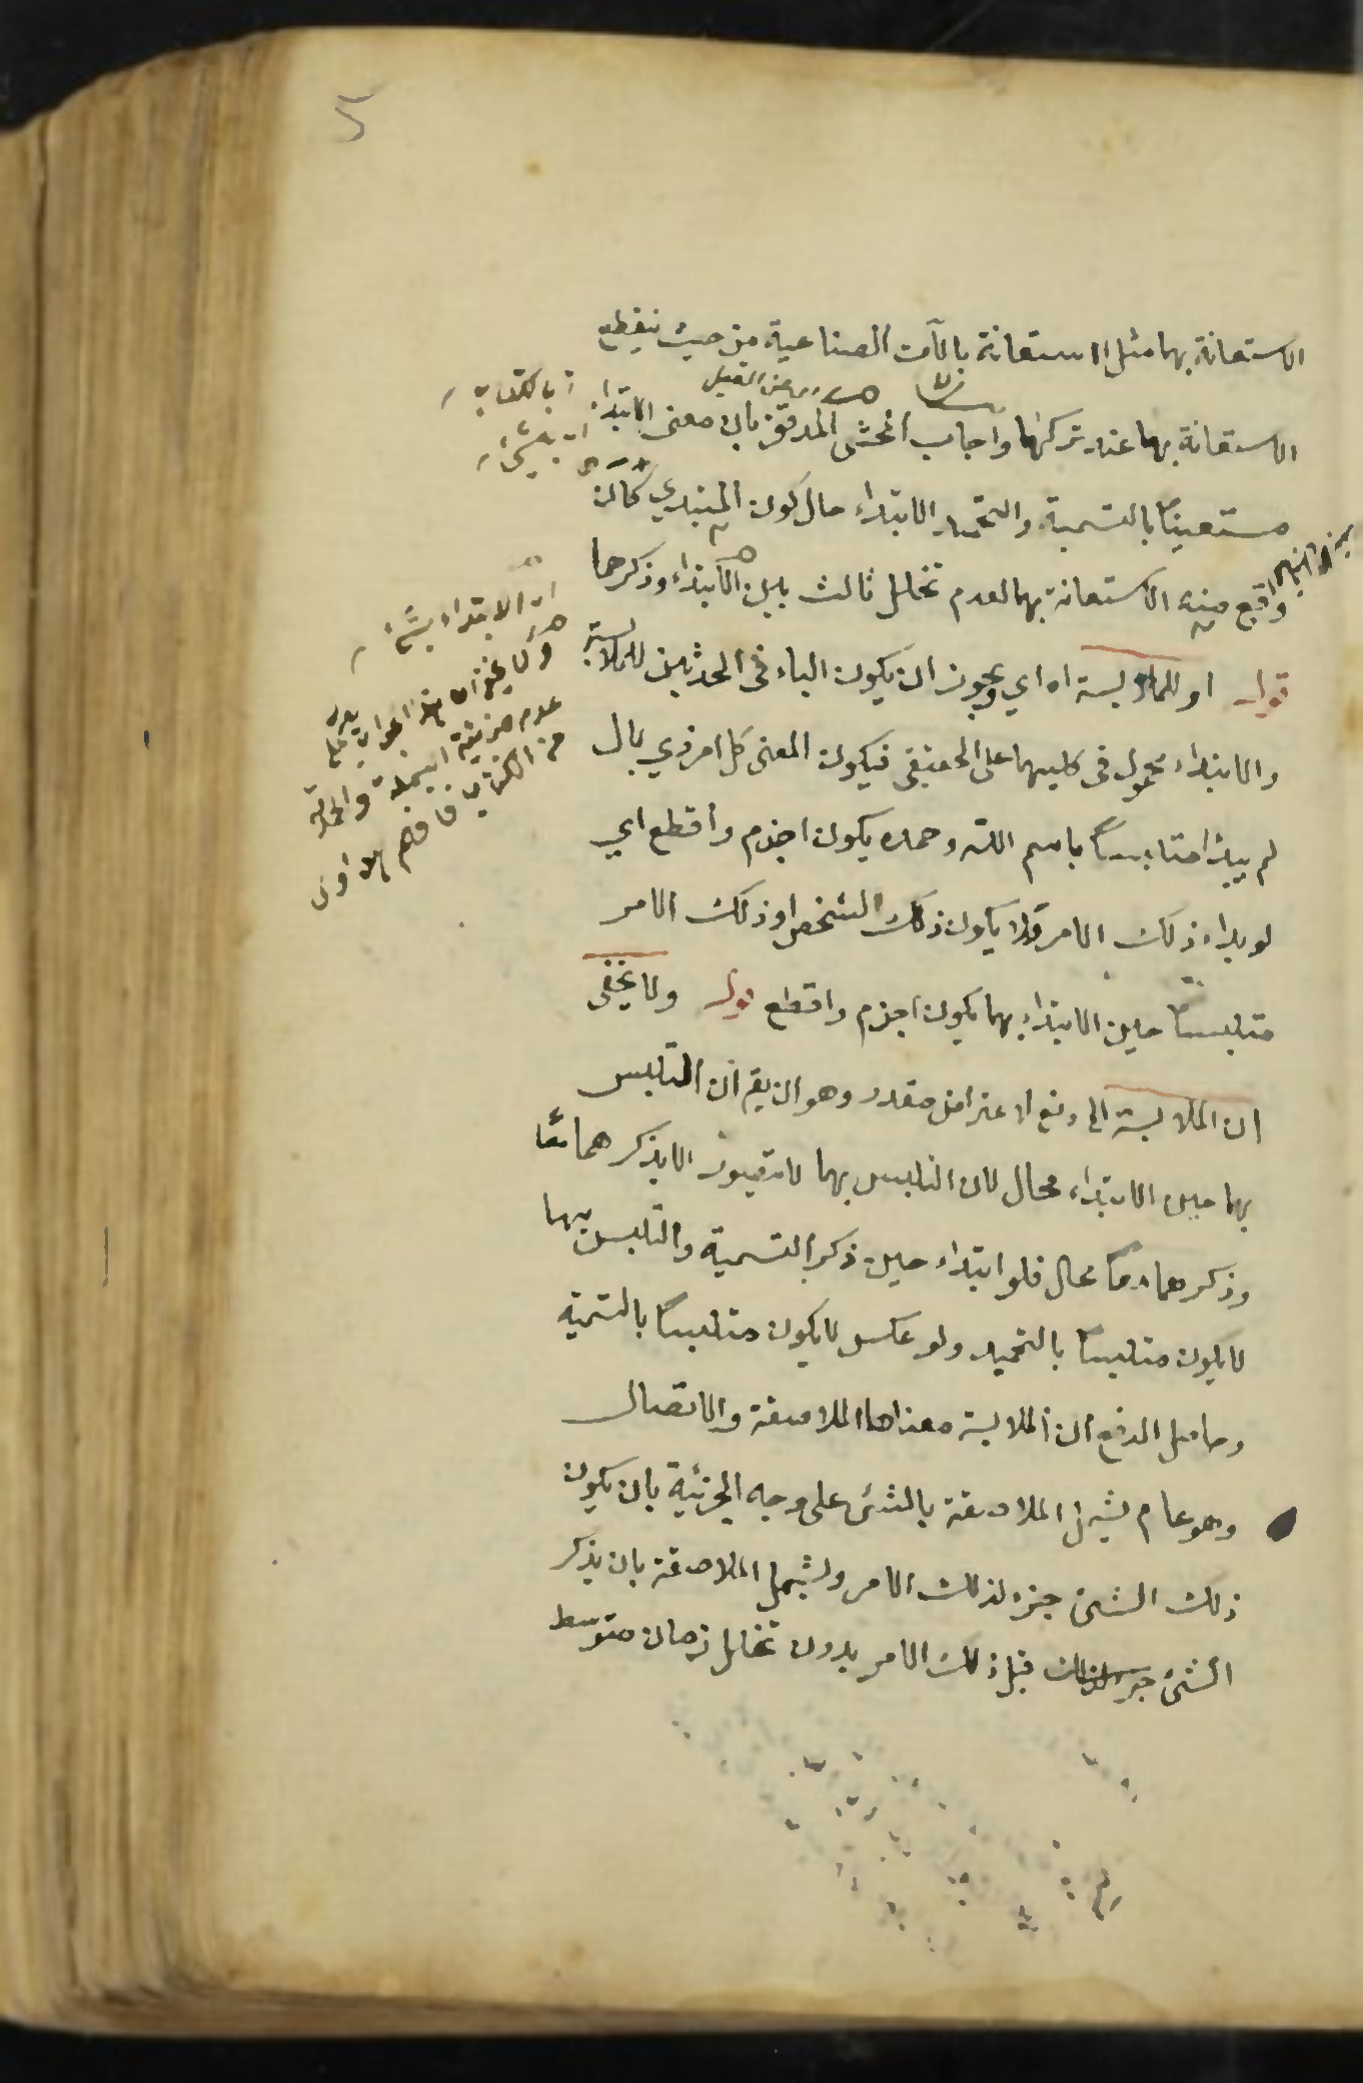 5
الاستعانة بهما مثل الاستعانة بالآت الصناعية من حيث ينقطع
الاستعانة بهما عند تركهما واجاب المحشى المدقق بان معنى الابتداء
مستعينًا بالتسمية والتحميد الابتداء حال كون المبتدي كائن
واقع منه الاستعانة بهما لعدم تخلل ثالث بين الابتداء وذكرهما
قوله او للملابسة اه اي ويجوز ان يكون الباء فى الحديثين للملابسة
والابتداء محمول فى كليهما على الحقيقى فيكون المعنى كل امر ذي بال
لم يبدأ متلبسًا باسم الله وحمده يكون اجذم واقطع اي
لو بداء ذلك الامر ولا يكون ذلك الشخص او ذلك الامر
متلبسًا حين الابتداء بهما يكون اجزم واقطع قوله ولا يخفى
ان الملابسة الخ دفع الاعتراض مقدر وهو ان يقم ان التلبس
بهما حين الابتداء محال لان التلبس بهما لا يتصور الا بذكرهما معًا
وذكرهما معًا محال فلو ابتداء حين ذكر التسمية والتلبس بها
لا يكون متلبسًا بالتحميد ولو عكس لا يكون متلبسًا بالتسمية
وحاصل الدفع ان الملابسة معناها الملاصقة والاتصال
وهو عام يشمل الملاصقة بالشئ على وجه الجزئية بان يكون
ذلك الشئ جزء لذلك الامر ويشمل الملاصقة بان يذكر
الشئ قبل ذلك الامر بدون تخلل زمان متوسط
بالكتاب
بشئ
الابتداء بشئ
ولا يخفى ان هذا الجواب يدل على
عدم جزئية البسملة والحمدلة
من الكتاب فافهم